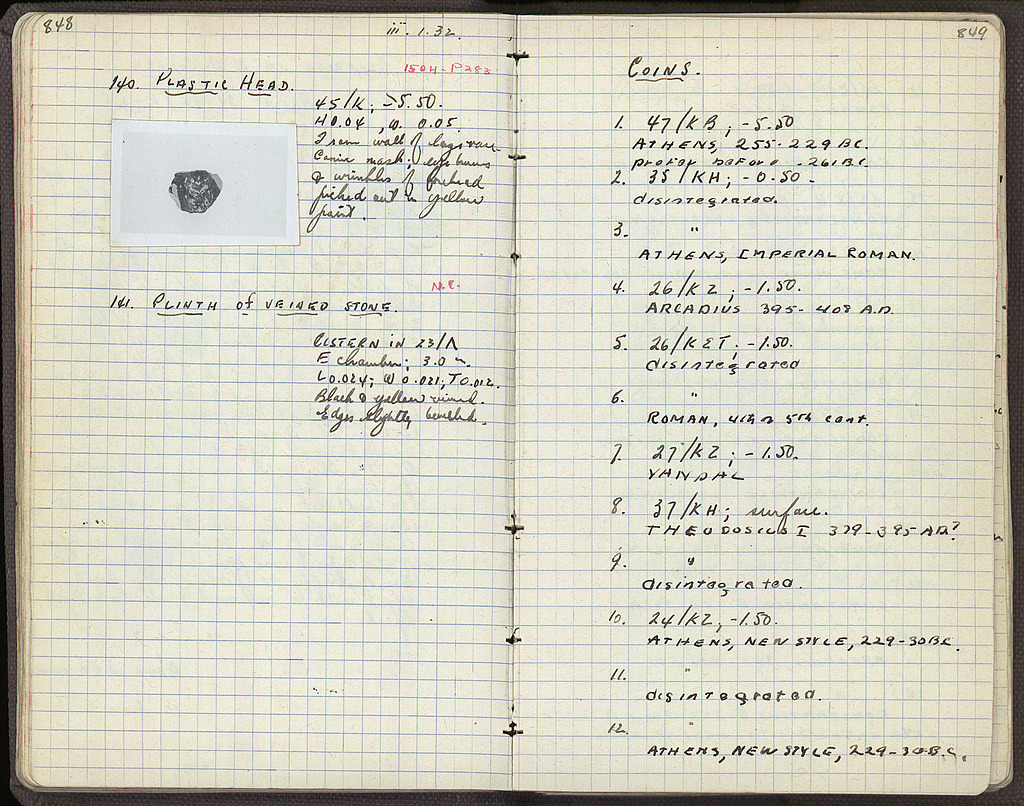 848
iii. 1. 32.
1504-P283
140. PLASTIC HEAD.
45/K; >5.50.
H 0.04, W. 0.05.
From wall of large vase.
Comic mask; eyebrows
& wrinkles of forehead
picked out in yellow
paint.
N.C.
141. PLINTH of VEINED STONE.
CISTERN IN 23/Λ
E chamber; 3.0 m.
L 0.024; W 0.021; T 0.012.
Black & yellow veined.
Edges slightly bevelled.
849
COINS.
1. 47/KB; -5.50
ATHENS, 255-229 BC.
before -261 BC
2. 35/KH; -0.50-
disintegrated.
3. "
ATHENS, IMPERIAL ROMAN.
4. 26/KZ; -1.50.
ARCADIUS 395-408 A.D.
5. 26/KΣT; -1.50.
disintegrated
6. "
ROMAN, 4th or 5th cent.
7. 27/KZ; -1.50.
VANDAL
8. 37/KH; surface.
THEODOSIUS I 379-395 AD?
9. "
disintegrated.
10. 24/KZ; -1.50.
ATHENS, NEW STYLE, 229-30 BC.
11. "
disintegrated.
12. "
ATHENS, NEW STYLE, 229-30 B.C.